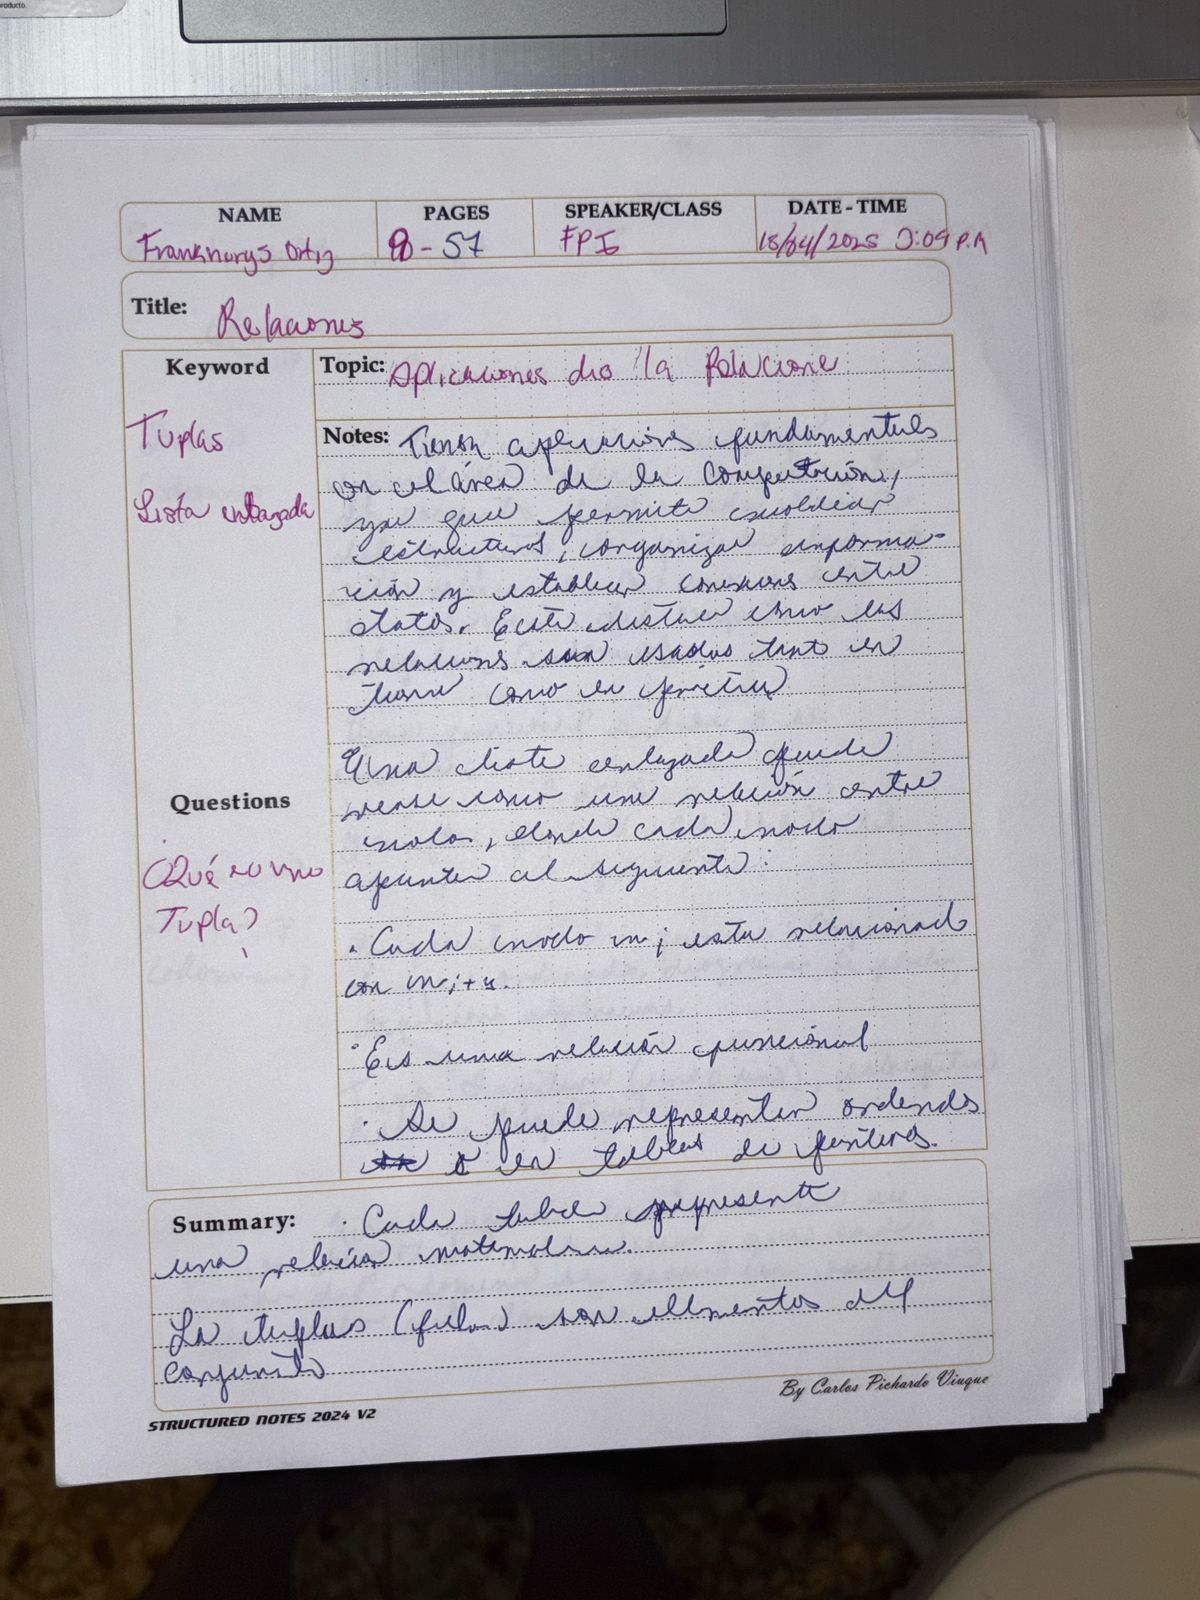 producto.
NAME PAGES SPEAKER/CLASS DATE - TIME
Franknurys Ortiz 8 - 57 FPI 18/04/2025 3:09 P.M
Title: Relaciones
Keyword
Topic: Aplicaciones de la Relacione
Tuplas
Lista enlazada
Notes: Tienen aplicaciones fundamentales
en el área de la computación,
ya que permite modelar
estructuras, organizar informa-
ción y establecer conexiones entre
datos. Este destaca como las
relaciones son usadas tanto en
teoria como en práctica
Questions
¿Qué es una
Tupla?
Una lista enlazada puede
verse como una relación entre
nodos, donde cada nodo
apunta al siguiente:
· Cada nodo n i esta relacionado
con n i+1.
· Es una relación funcional
· Se puede representar ordenados
en tablas de punteros.
Summary: · Cada tabla representa
una relación matematica.
La tuplas (filas) son elementos del
conjunto
By Carlos Pichardo Viuque
STRUCTURED NOTES 2024 V2